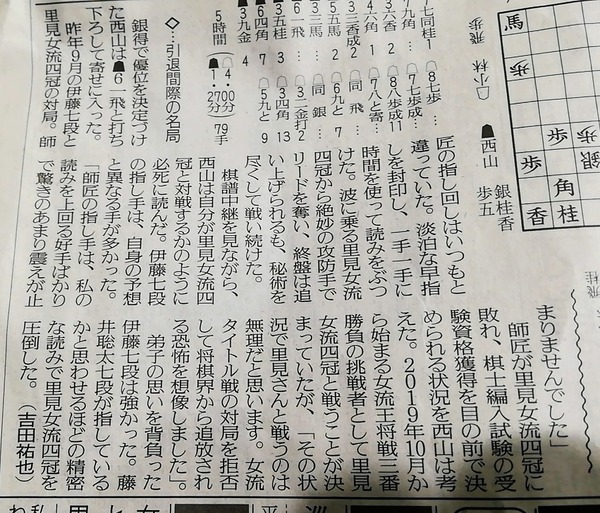 馬
歩
歩 歩 銀
角
香 桂
☗西山 銀桂香 歩五
☖小林 飛歩
七同桂 1 ☖8七歩 …
3三馬 … 同 銀 …
6一飛 … 3二金打2
3五桂 3 3四角 13
6四角 7 5九と 9
3九金
5時間
79手
◇…引退間際の名局
銀得で優位を決定づけ
た西山は☗6一飛と打ち
下ろして寄せに入った。
昨年9月の伊藤七段と
里見女流四冠の対局。師
匠の指し回しはいつもと
違っていた。淡泊な早指
しを封印し、一手一手に
時間を使って読みをぶつ
けた。波に乗る里見女流
四冠から絶妙の攻防手で
リードを奪い、終盤は追
い上げられるも、秘術を
尽くして戦い続けた。
棋譜中継を見ながら、
西山は自分が里見女流四
冠と対戦するかのように
必死に読んだ。伊藤七段
の指し手は、自身の予想
と異なる手が多かった。
「師匠の指し手は、私の
読みを上回る好手ばかり
で驚きのあまり震えが止
まりませんでした」
師匠が里見女流四冠に
敗れ、棋士編入試験の受
験資格獲得を目の前で決
められる状況を西山は考
えた。2019年10月か
ら始まる女流王将戦三番
勝負の挑戦者として里見
女流四冠と戦うことが決
まっていたが、「その状
況で里見さんと戦うのは
無理だと思います。女流
タイトル戦の対局を拒否
して将棋界から追放され
る恐怖を想像しました」。
弟子の思いを背負った
伊藤七段は強かった。藤
井聡太七段が指している
かと思わせるほどの精密
な読みで里見女流四冠を
圧倒した。（吉田祐也）